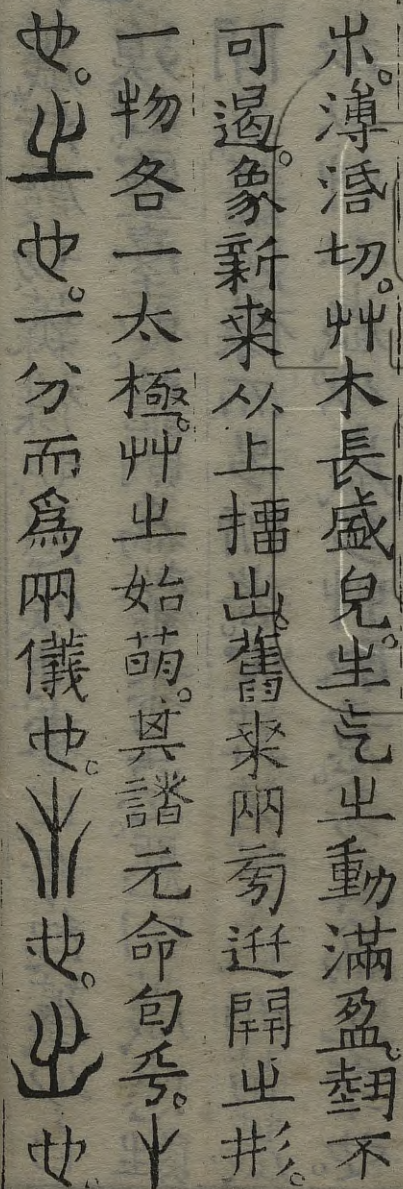 𣎵。溥活切。艸木長盛皃。生气㞢動滿盈。埶不
可遏。象新來从上擂出。舊來兩㫄逬開㞢形。
一物各一太極。艸㞢始萌。其諧元命包乎。屮
也。㞢也。一分而爲兩儀也。也。出也。